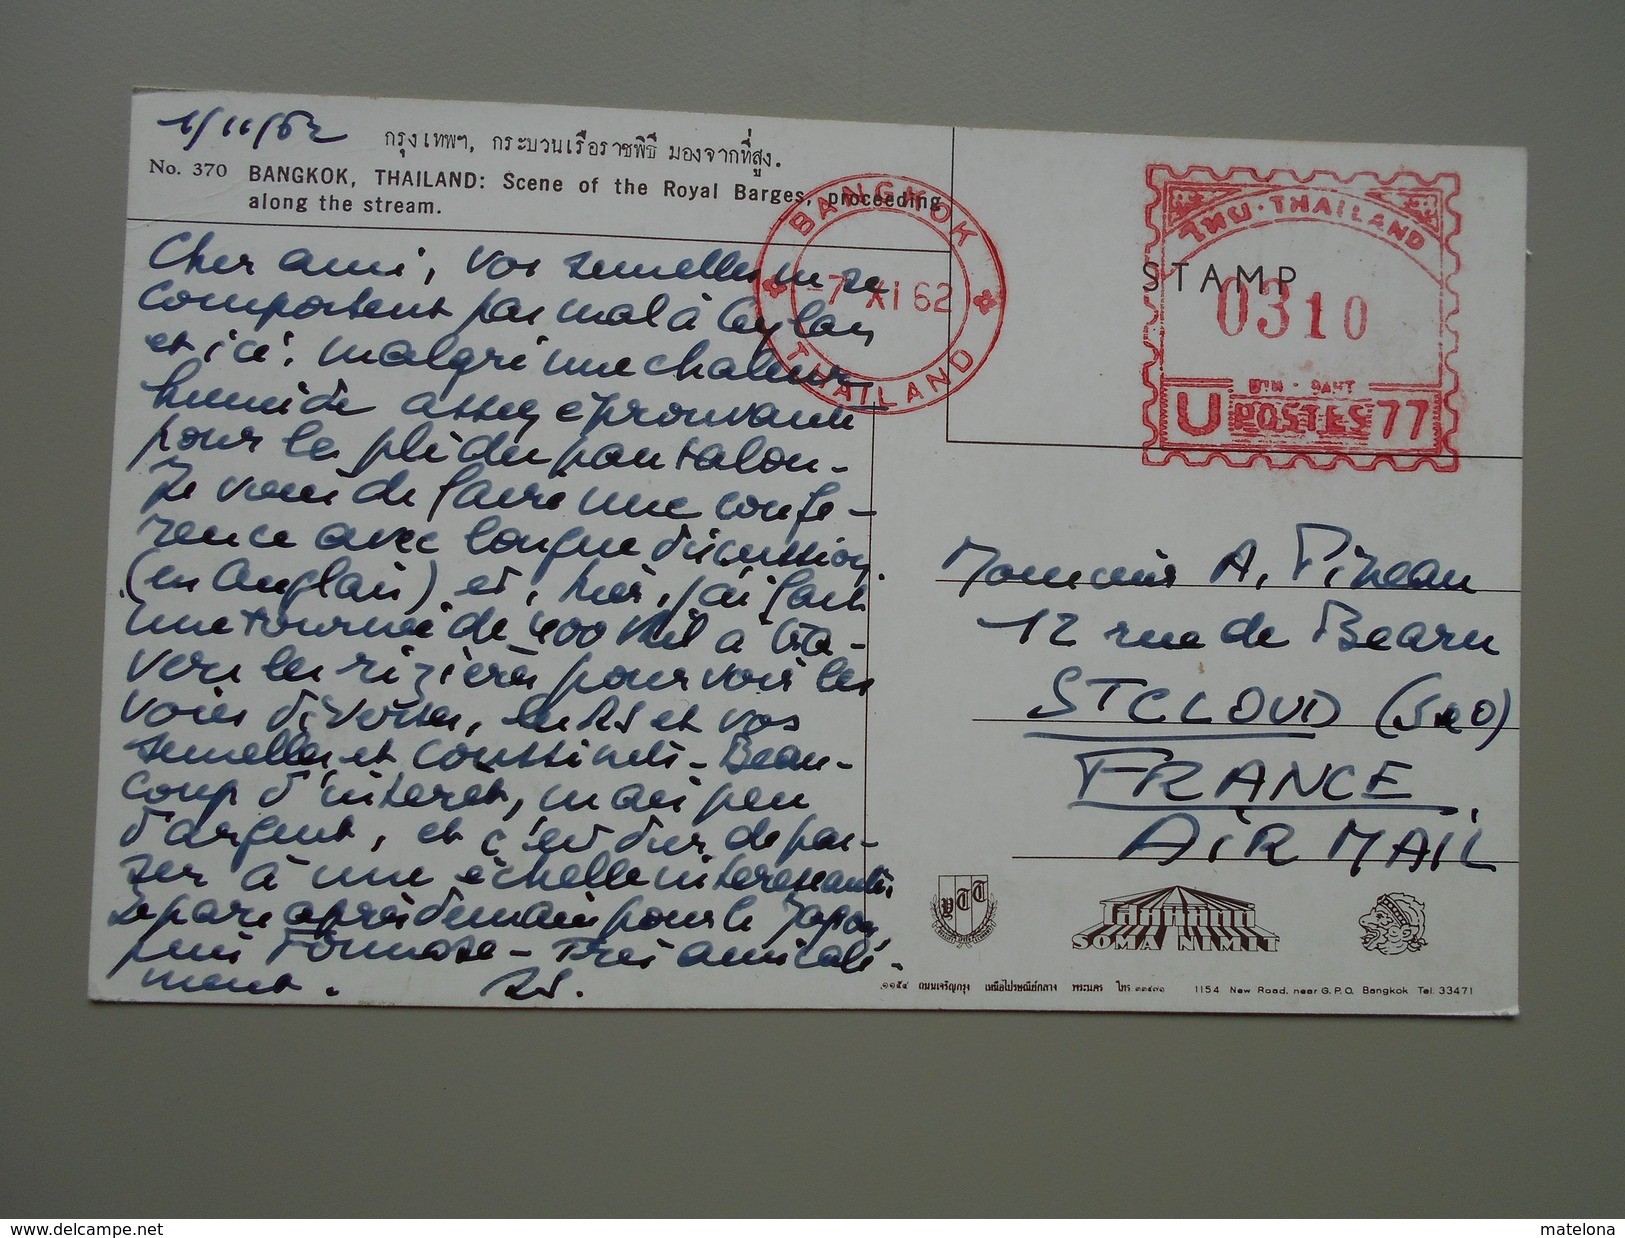 /11/62
กรุงเทพฯ, กระบวนเรือราชพิธี มองจากที่สูง.
No. 370 BANGKOK, THAILAND: Scene of the Royal Barges, proceeding
along the stream.
BANGKOK
-7 XI 62
THAILAND
THAILAND
STAMP
0310
U POSTES 77
Cher ami, vos semelles ne se
comportent pas mal à Ceylan
et ici, malgré une chaleur
humide assez éprouvante
pour le pli du pantalon -
Je viens de faire une confé-
rence avec longue discussion
(en anglais) et, hier, j'ai fait
une tournée de 400 Kil à tra-
vers les rizières pour voir les
voies diverses, les RS et vos
semelles et coussinets - Beau-
coup d'intérêt, mais peu
d'argent, et c'est dur de pas-
ser à une échelle intéressante.
Je pars après demain pour le Japon,
puis Formose - Très amicale-
ment. RS.
Monsieur A. Pineau
12 rue de Bearn
ST CLOUD (S&O)
FRANCE
AIR MAIL
SOMA NIMIT
๑๑๕๔ ถนนเจริญกรุง เหนือไปรษณีย์กลาง พระนคร โทร ๓๓๔๗๑ 1154 New Road, near G.P.O. Bangkok Tel. 33471
http://www.delcampe.net
matelona